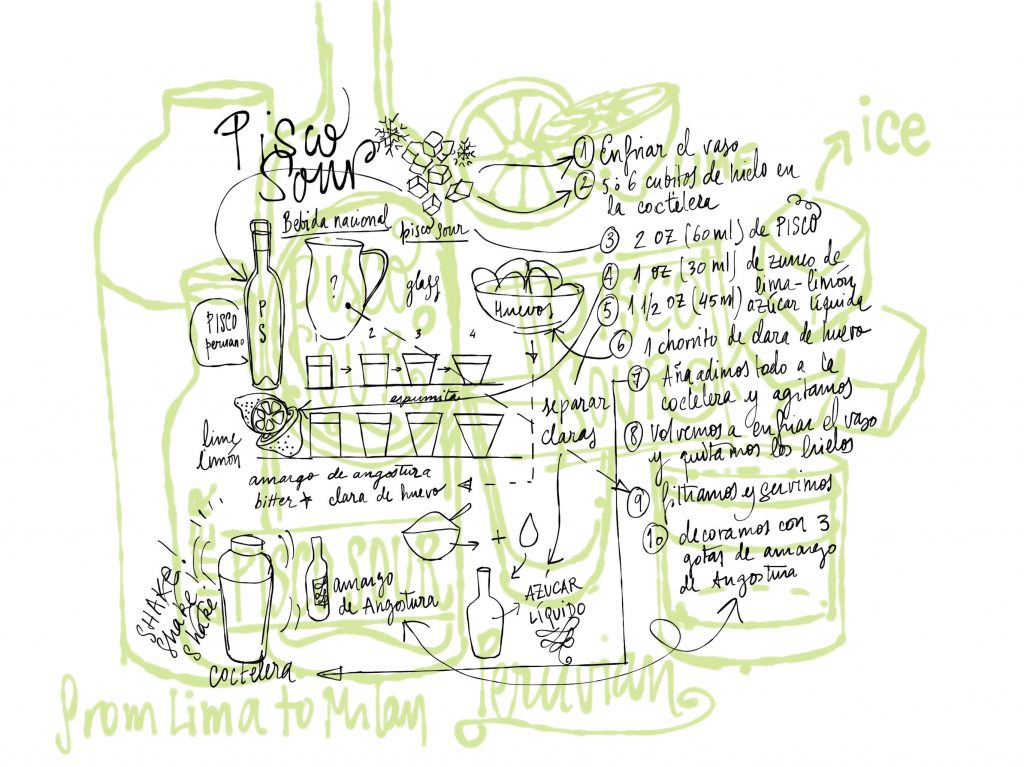 Pisco
Sour
Bebida nacional
pisco sour
?
glass
PISCO
peruano
P
S
1 2 3 4
espumita
lime
limón
amargo de angostura
bitter * clara de huevo
Huevos
separar
claras
+
AZÚCAR
LÍQUIDO
SHAKE!
Shake!
Shake!
coctelera
amargo
de Angostura
1 Enfriar el vaso
2 5 ó 6 cubitos de hielo en
la coctelera
3 2 OZ (60ml) de PISCO
4 1 OZ (30 ml) de zumo de
lima-limón
5 1 1/2 OZ (45ml) azúcar líquida
6 1 chorrito de clara de huevo
7 Añadimos todo a la
coctelera y agitamos
8 Volvemos a enfriar el vaso
y quitamos los hielos
9 filtramos y servimos
10 decoramos con 3
gotas de amargo
de Angostura
ice
PISCO
SOUR
PISCO SOUR
from Lima to Milan
Peruvian